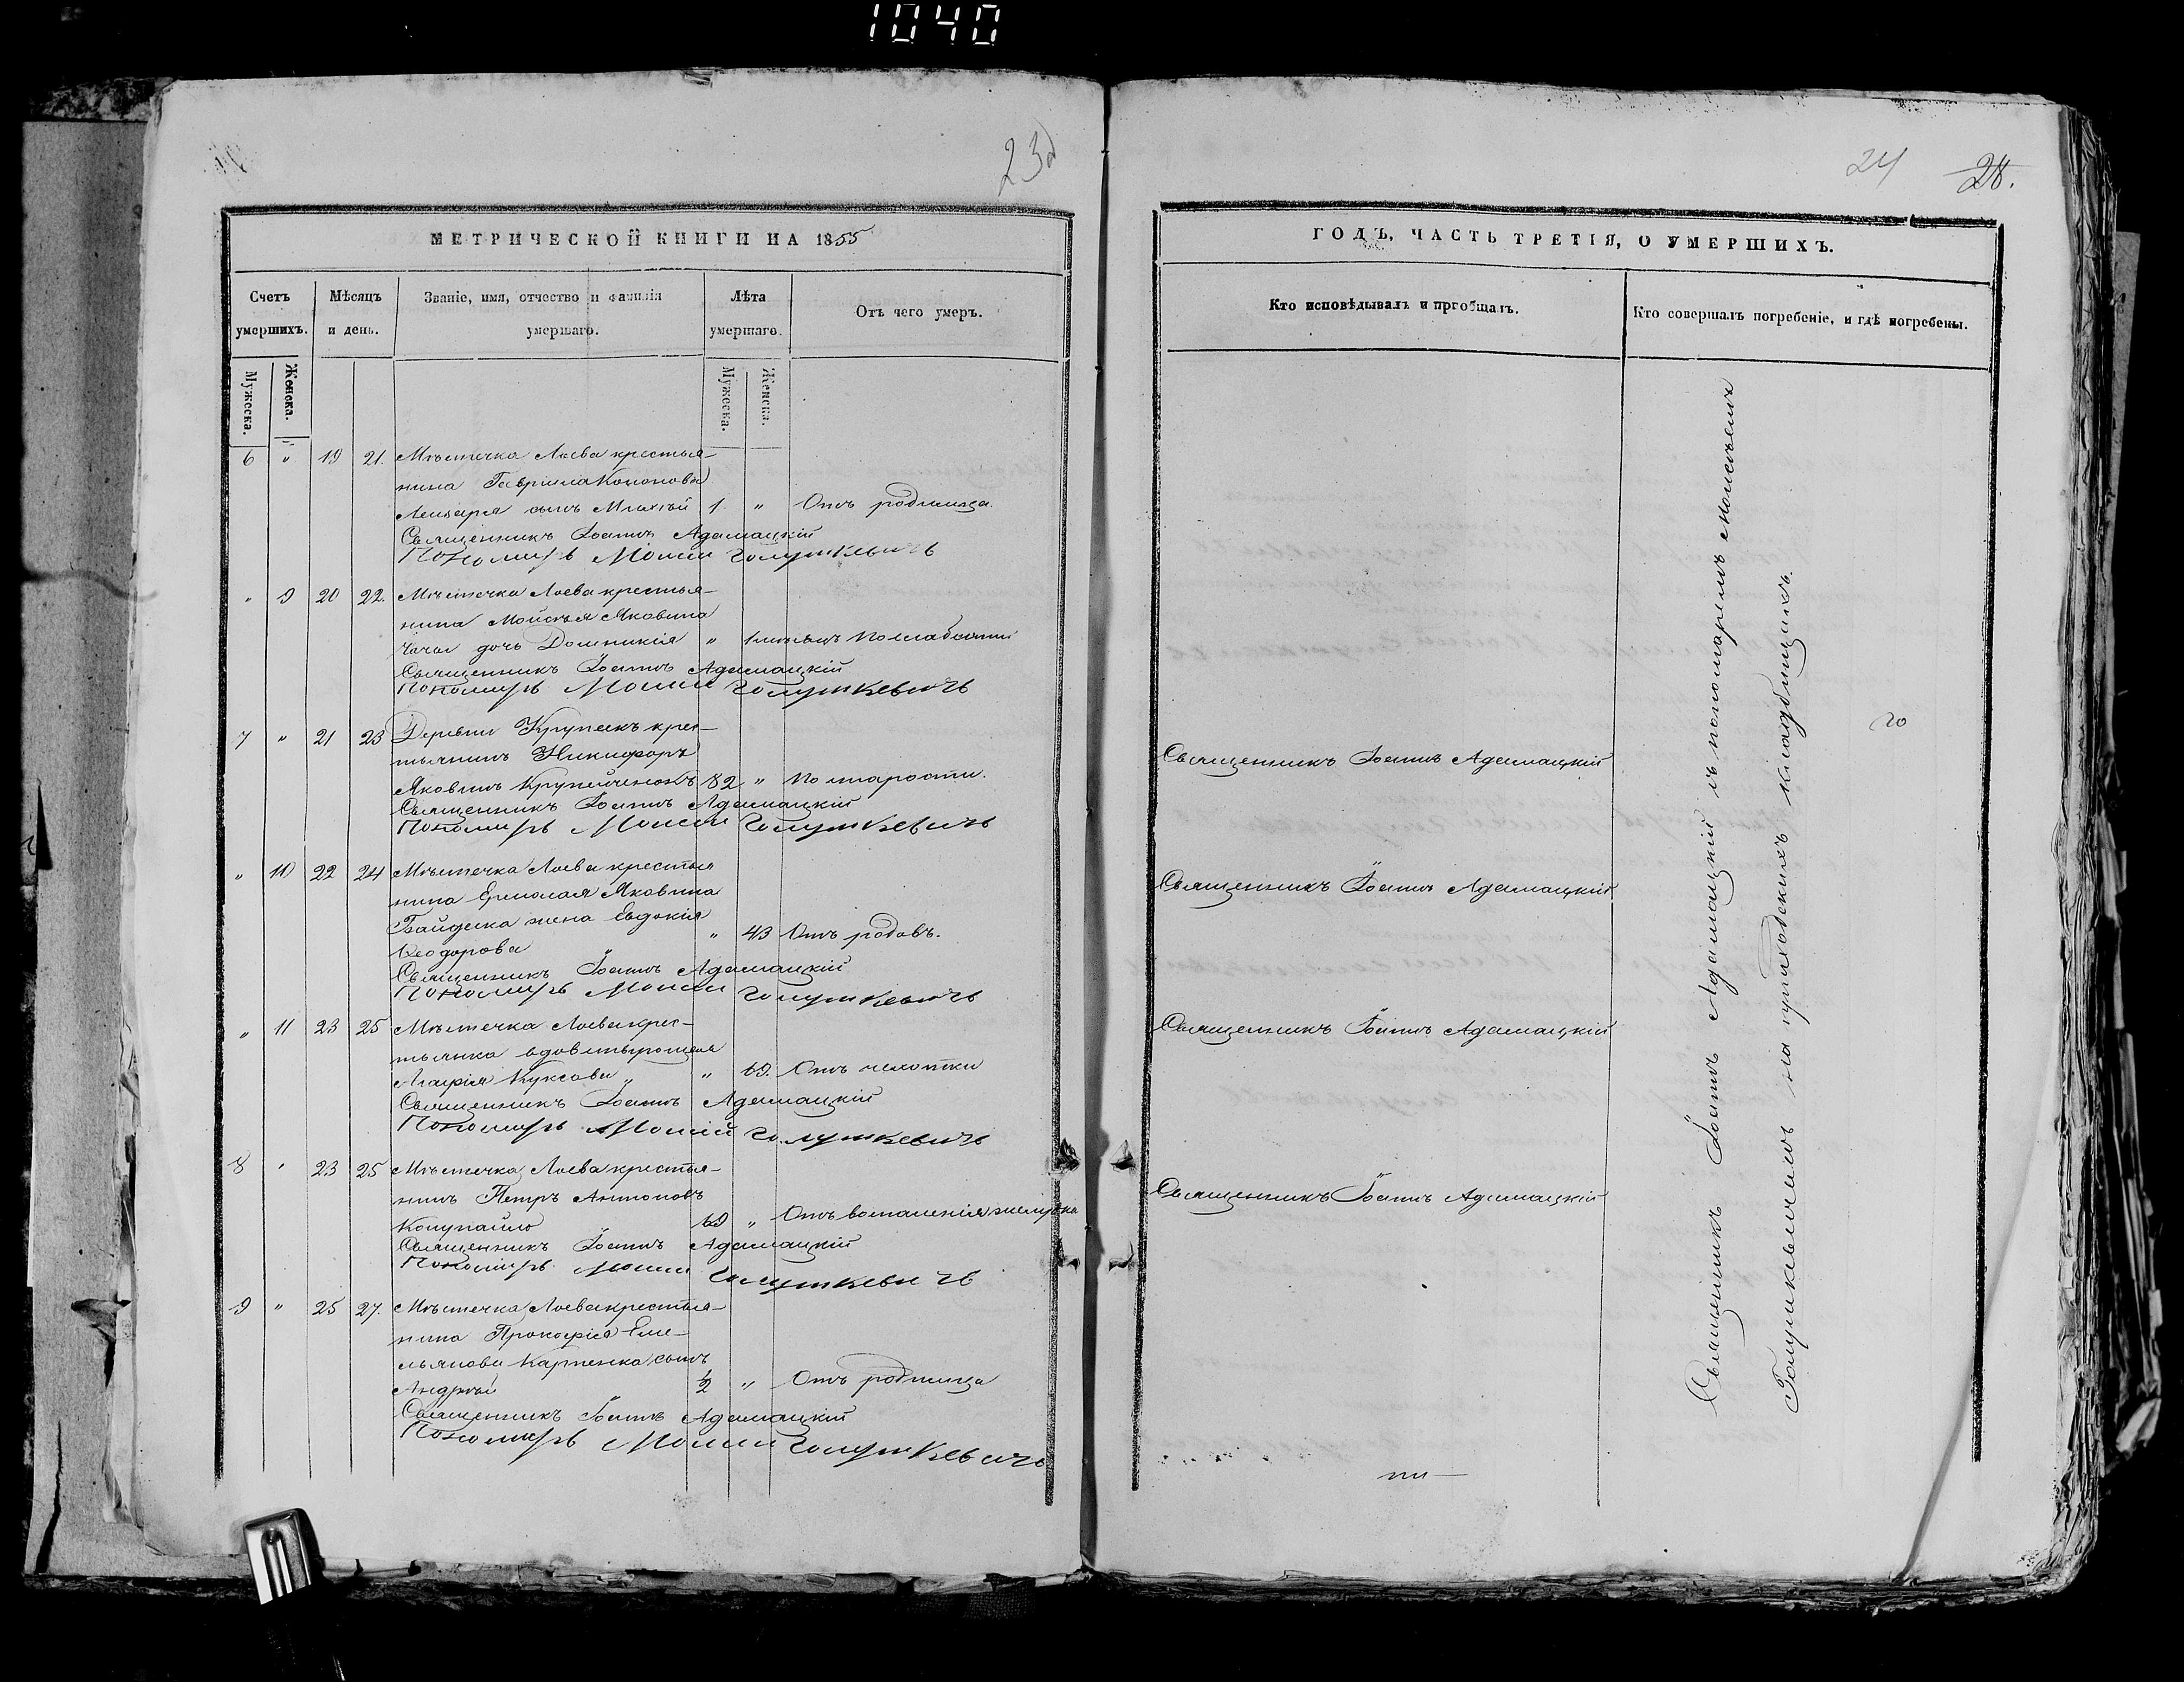 1040
23
24
28.
МЕТРИЧЕСКОЙ КНИГИ НА 1855
Счетъ умершихъ.
Мѣсяцъ и день.
Званіе, имя, отчество и фамилія умершаго.
Лѣта умершаго.
Отъ чего умеръ.
Мужеска.
Женска.
Мужеска.
Женска.
6 " 19 21. Мѣстечка Лоева крестья-
нина Гавріила Кононова
сынъ 1. " Отъ родимца.
Священникъ Іоаннъ Адамацкій
Пономарь Моисей Голушкевичъ
" 9 20 22. Мѣстечка Лоева крестья-
нина Мойсѣя Яковина
дочь Домникія " 1 мѣсяцъ По слабости
Священникъ Іоаннъ Адамацкій
Пономарь Моисей Голушкевичъ
7 " 21 23 Деревни Крупекъ крес-
тьянинъ Никифоръ
Яковинъ Крупейченокъ 82 " По старости.
Священникъ Іоаннъ Адамацкій
Пономарь Моисей Голушкевичъ
" 10 22 24 Мѣстечка Лоева крестья
нина Ермолая Яковина
Байдека жена Евдокія
Ѳеодорова " 43 Отъ родовъ.
Священникъ Іоаннъ Адамацкій
Пономарь Моисей Голушкевичъ
" 11 23 25 Мѣстечка Лоева крес-
тьянка вдовствующая
Агафія Куксова " " 69. Отъ чехотки
Священникъ Іоаннъ Адамацкій
Пономарь Моисій Голушкевичъ
8 " 23 25 Мѣстечка Лоева крестья-
нинъ Петръ Антоновъ
Копупайло 69 " Отъ воспаленія желудка
Священникъ Іоаннъ Адамацкій
Пономарь Моисей Голушкевичъ
9 " 25 27. Мѣстечка Лоева крестья-
нина Прокофія Еме-
льянова Карпенка сынъ
Андрей 1/2 " Отъ родимца
Священникъ Іоаннъ Адамацкій
Пономарь Моисей Голушкевичъ
ГОДЪ, ЧАСТЬ ТРЕТІЯ, О УМЕРШИХЪ.
Кто исповѣдывалъ и пріобщалъ.
Кто совершалъ погребеніе, и гдѣ погребены.
Священникъ Іоаннъ Адамацкій
Священникъ Іоаннъ Адамацкій
Священникъ Іоаннъ Адамацкій
Священникъ Іоаннъ Адамацкій
Священникъ Іоаннъ Адамацкій съ пономаремъ Моисѣемъ
Голушкевичемъ на приходскихъ кладбищахъ.